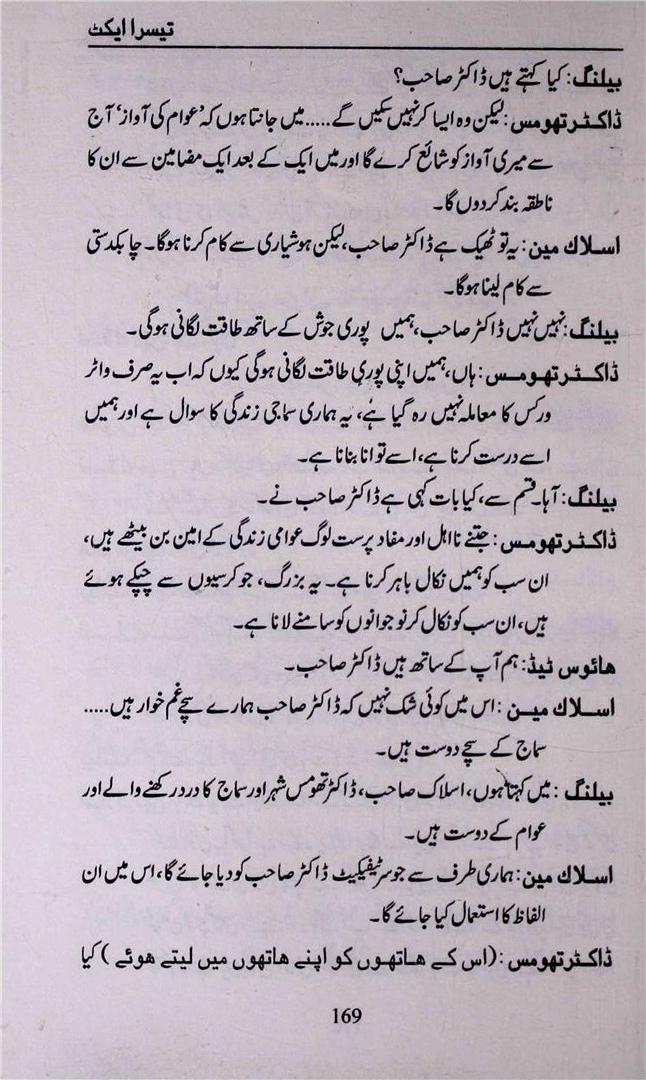 تیسرا ایکٹ
بیلنگ: کیا کہتے ہیں ڈاکٹر صاحب؟
ڈاکٹر تھومس: لیکن وہ ایسا کر نہیں سکیں گے..... میں جانتا ہوں کہ ’عوام کی آواز‘ آج
سے میری آواز کو شائع کرے گا اور میں ایک کے بعد ایک مضامین سے ان کا
ناطقہ بند کر دوں گا۔
اسلاک مین: یہ تو ٹھیک ہے ڈاکٹر صاحب، لیکن ہوشیاری سے کام کرنا ہوگا۔ چابکدستی
سے کام لینا ہوگا۔
بیلنگ: نہیں نہیں ڈاکٹر صاحب، ہمیں پوری جوش کے ساتھ طاقت لگانی ہوگی۔
ڈاکٹر تھومس: ہاں، ہمیں اپنی پوری طاقت لگانی ہوگی کیوں کہ اب یہ صرف واٹر
ورکس کا معاملہ نہیں رہ گیا ہے، یہ ہماری سماجی زندگی کا سوال ہے اور ہمیں
اسے درست کرنا ہے، اسے توانا بنانا ہے۔
بیلنگ: آہا۔ قسم سے، کیا بات کہی ہے ڈاکٹر صاحب نے۔
ڈاکٹر تھومس: جتنے نااہل اور مفاد پرست لوگ عوامی زندگی کے امین بن بیٹھے ہیں،
ان سب کو ہمیں نکال باہر کرنا ہے۔ یہ بزرگ، جو کرسیوں سے چپکے ہوئے
ہیں، ان سب کو نکال کر نوجوانوں کو سامنے لانا ہے۔
ہائوس ٹیڈ: ہم آپ کے ساتھ ہیں ڈاکٹر صاحب۔
اسلاک مین: اس میں کوئی شک نہیں کہ ڈاکٹر صاحب ہمارے سچے غم خوار ہیں.....
سماج کے سچے دوست ہیں۔
بیلنگ: میں کہتا ہوں، اسلاک صاحب، ڈاکٹر تھومس شہر اور سماج کا درد رکھنے والے اور
عوام کے دوست ہیں۔
اسلاک مین: ہماری طرف سے جو سرٹیفیکیٹ ڈاکٹر صاحب کو دیا جائے گا، اس میں ان
الفاظ کا استعمال کیا جائے گا۔
ڈاکٹر تھومس: (اس کے ہاتھوں کو اپنے ہاتھوں میں لیتے ہوئے) کیا
169